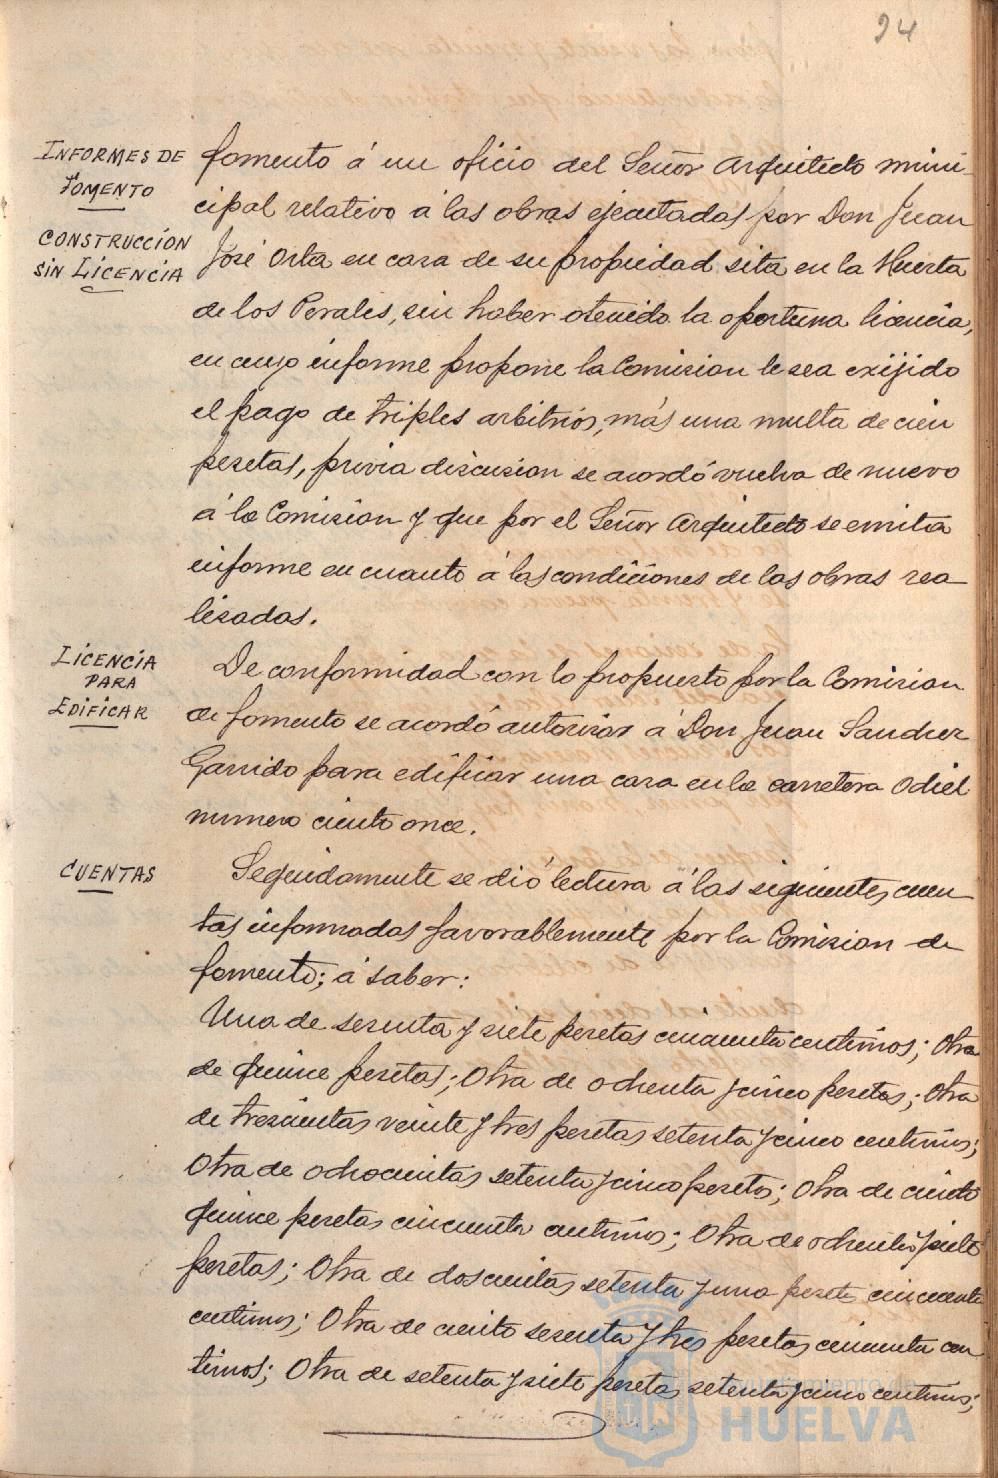 94
INFORMES DE
FOMENTO
CONSTRUCCIÓN
SIN LICENCIA
fomento á un oficio del Señor Arquitecto muni-
cipal relativo á las obras ejecutadas por Don Juan
José Orta en casa de su propiedad sita en la Huerta
de los Perales, sin haber otenido la oportuna licencia,
en cuyo informe propone la Comision le sea exijido
el pago de triples arbitrios, más una multa de cien
pesetas, prévia discusion se acordó vuelva de nuevo
á la Comision y que por el Señor Arquitecto se emita
informe en cuanto á las condiciones de las obras rea
lisadas.
LICENCIA
PARA
EDIFICAR
De conformidad con lo propuesto por la Comision
de fomento se acordó autorisar á Don Juan Sanchez
Garrido para edificar una casa en la carretera Odiel
numero ciento once.
CUENTAS
Seguidamente se dió lectura á las siguientes cuen
tas informadas favorablemente por la Comision de
fomento; á saber:
Una de sesenta y siete pesetas cincuenta centimos; Otra
de quince pesetas; Otra de ochenta y cinco pesetas; Otra
de trescientas veinte y tres pesetas setenta y cinco centimos;
Otra de ochocientas setenta y cinco pesetas; Otra de ciento
quince pesetas cincuenta centimos; Otra de ochenta y siete
pesetas; Otra de doscientas setenta y una peseta cincuenta
centimos; Otra de ciento sesenta y tres pesetas cincuenta cen
timos; Otra de setenta y siete pesetas setenta y cinco centimos;
Ayuntamiento de
HUELVA